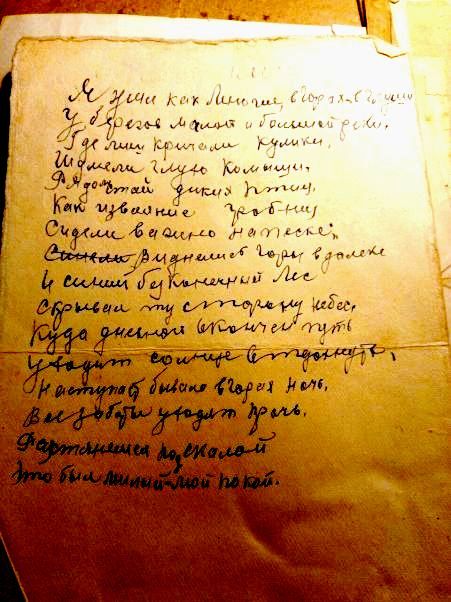 Я жил как многие, в горах, в глуши
У берегов малой и большой реки,
Где лиш кричали кулики,
Шумели глухо комыши,
Рядом стай диких птиц,
Как изваяние гробниц
Сидели важно на песке,
Синели Виднелись горы в далеке
И синий бесконечный лес
Скрывал ту сторону небес,
Куда дневной окончен путь
Уходит солнце отдохнуть,
Наступает бывало в горах ночь,
Все заботы уходят прочь.
под скалой
Это был милый мой покой.